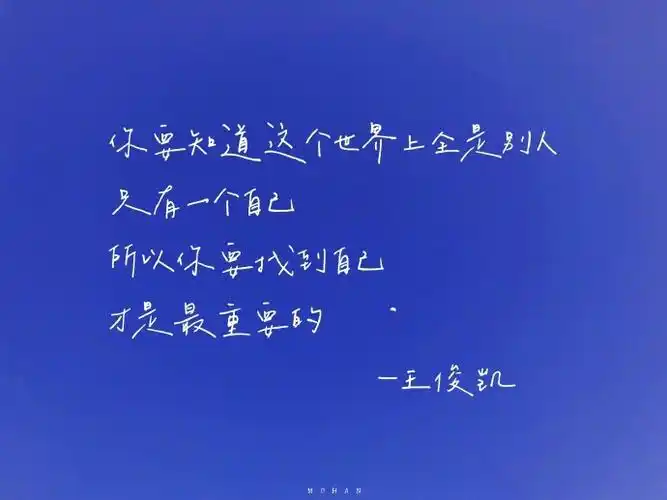 你要知道这个世界上全是别人
只有一个自己
所以你要找到自己
才是最重要的
一王俊凯
MOHAN